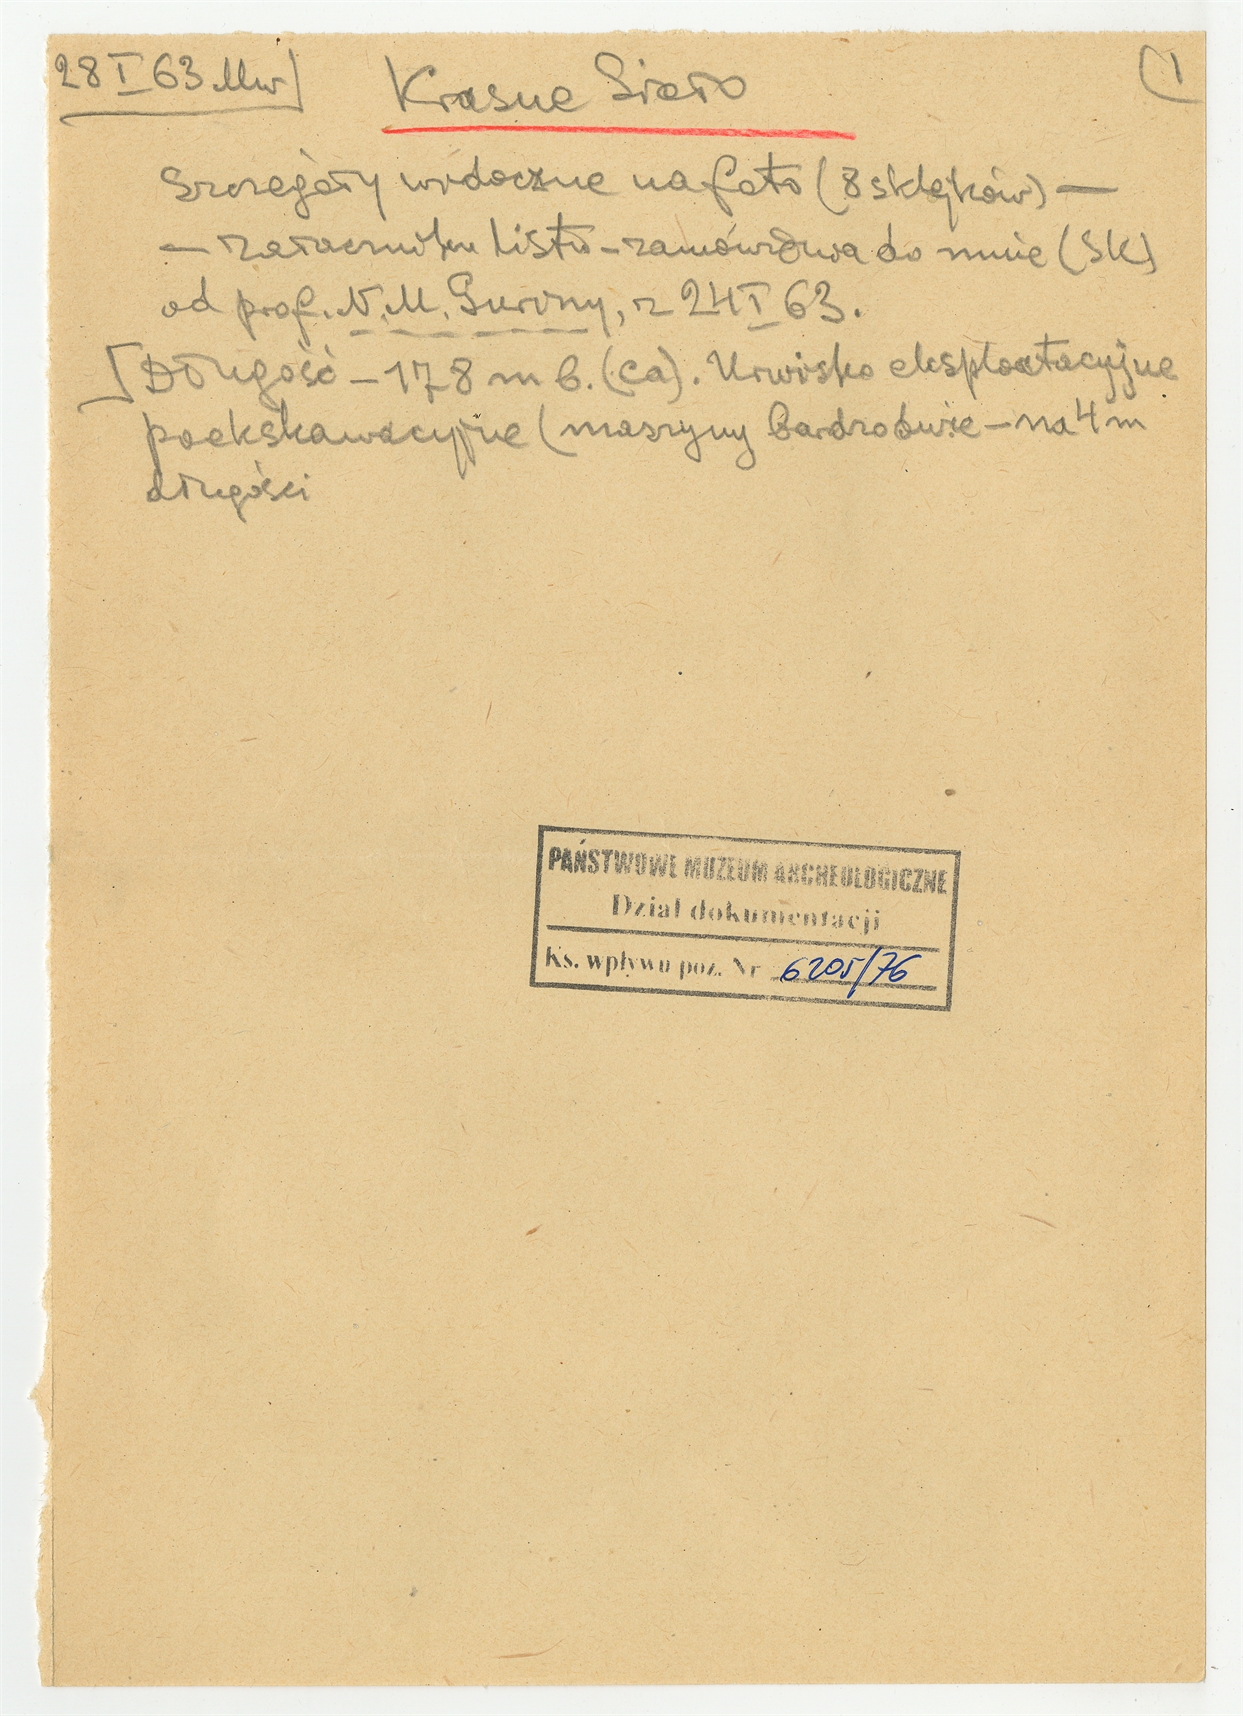 28 I 63 Mw] Krasne Sioło (1
Szczegóły widoczne na foto (8 sklejków) —
— załączniku listu-zamówienia do mnie (SK)
od prof. N. M. Guriny, z 24 I 63.
[Długość – 178 m b. (ca). Urwisko eksploatacyjne
poekskawacyjne (maszyny – na 4 m
długości
PAŃSTWOWE MUZEUM ARCHEOLOGICZNE
Dział dokumentacji
Ks. wpływu poz. Nr 6205/76